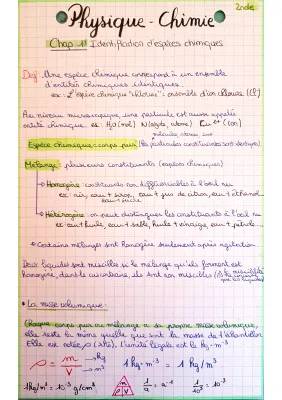 2nde
Physique - Chimie
Chap 1: Identification d'espèces chimiques
Def: Une espèce chimique correspond à un ensemble
d'entités chimiques identiques.
ex: L'espèce chimique "chlorure": ensemble d'ion chlorure (Cl⁻)
Au niveau microscopique, une particule est aussi appelée
entité chimique ex: H₂O (mol) N (atome) Cu²⁺ (ion)
molécules, atomes, ions
Espèce chimique = corps pur (les particules constituantes sont identiques)
Mélange: plusieurs constituants (espèces chimiques)
→ Homogène: constituants non différenciables à l'oeil nu
ex: air, eau + sirop, eau + jus de citron, eau + éthanol
eau + sucre
→ Hétérogène: on peut distinguer les constituants à l'oeil nu
ex: eau + huile, eau + sable, huile + vinaigre, eau + pétrole
Certains mélanges sont homogène seulement après agitation
Deux liquides sont miscibles si le mélange qu'ils forment est
homogène, dans le cas contraire, ils sont non miscibles
• La masse volumique:
Chaque corps pur ou mélange a sa propre masse volumique,
elle reste la même quelle que soit la masse de l'échantillon.
Elle est notée ρ (rho). L'unité légale est le kg·m⁻³
ρ = m/V → kg → m³ 1 kg·m⁻³ = 1 kg/m³
1 kg/m³ = 10⁻³ g/cm³ m ρ V 1/a = a⁻¹ 1/10³ = 10⁻³